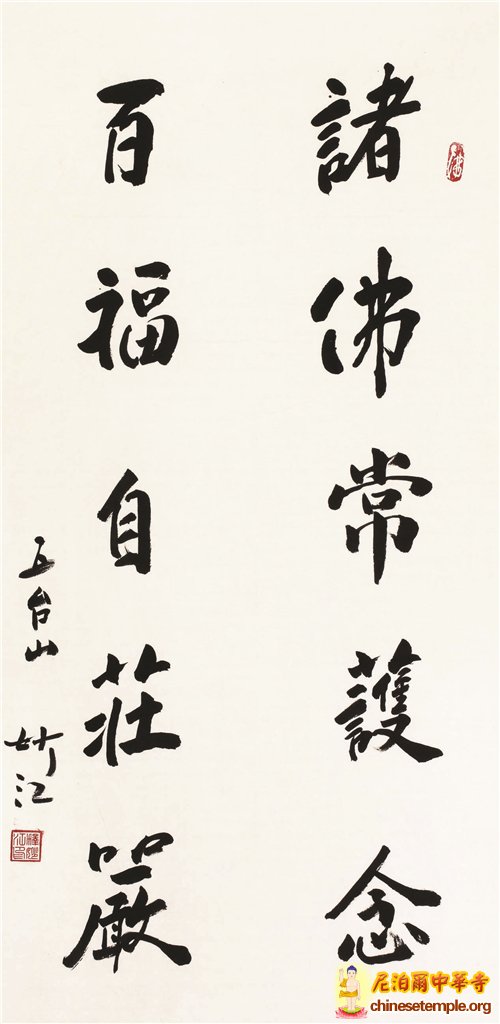 諸佛常護念
百福自莊嚴
五台山 妙江
尼泊爾中華寺
chinesetemple.org